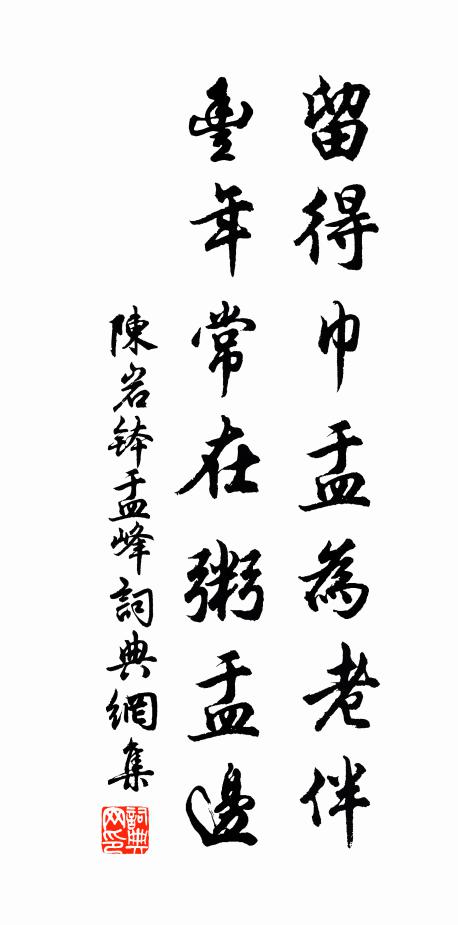 留得巾盂為老伴
豐年常在粥盂邊
陳岩鉢盂峰詞典網集
詞典网印